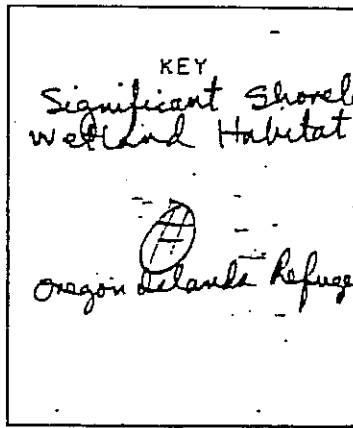 KEY
Significant Shorel
Wetland Habitat
Oregon Islands Refuge